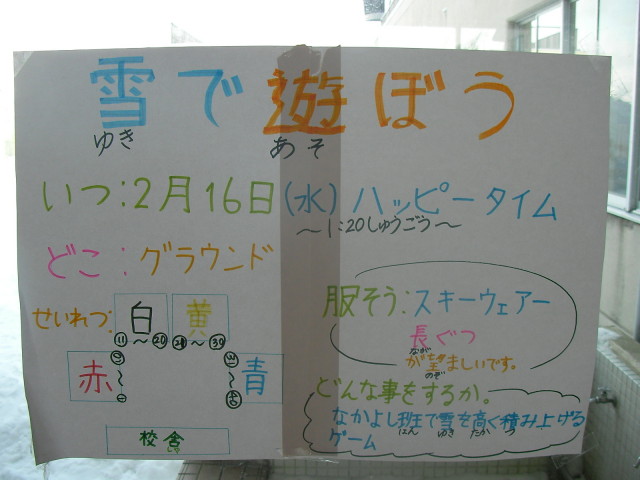 雪で遊ぼう
ゆき あそ
いつ:2月16日(水)ハッピータイム
～1:20しゅうごう～
どこ:グラウンド
せいれつ:
白 黄
⑪～⑳ ～
赤 青
校舎
服そう:スキーウェアー
長ぐつ
なが
が望ましいです。
のぞ
どんな事をするか。
なかよし班で雪を高く積み上げる
はん ゆき たか つ
ゲーム